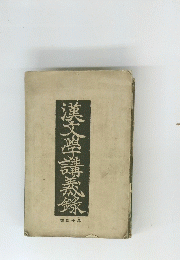 漢文學講義錄